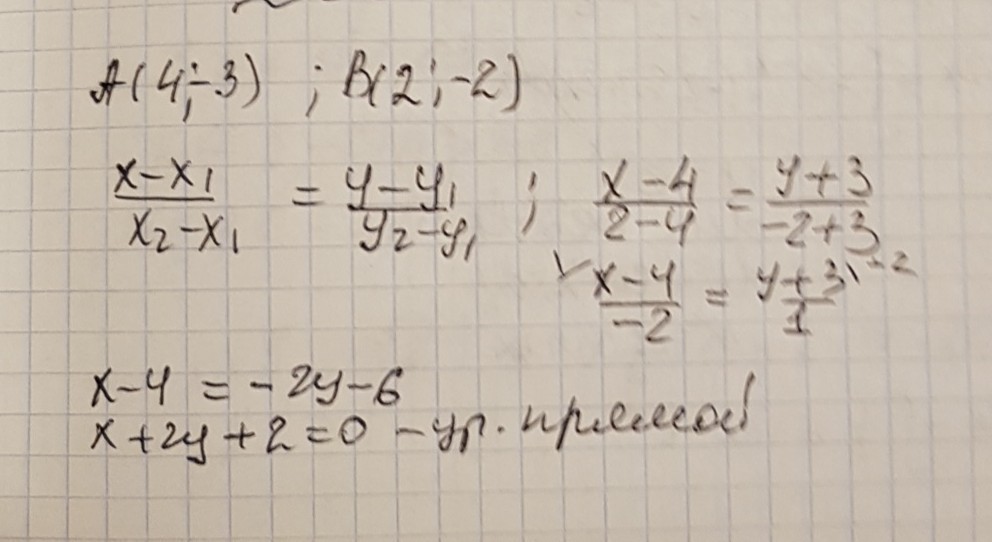 A(4;-3) ; B(2;-2)
x-x₁/x₂-x₁ = y-y₁/y₂-y₁ ; x-4/2-4 = y+3/-2+3
x-4/-2 = y+3/1 \-2
x-4 = -2y-6
x+2y+2=0 -ур. прямой